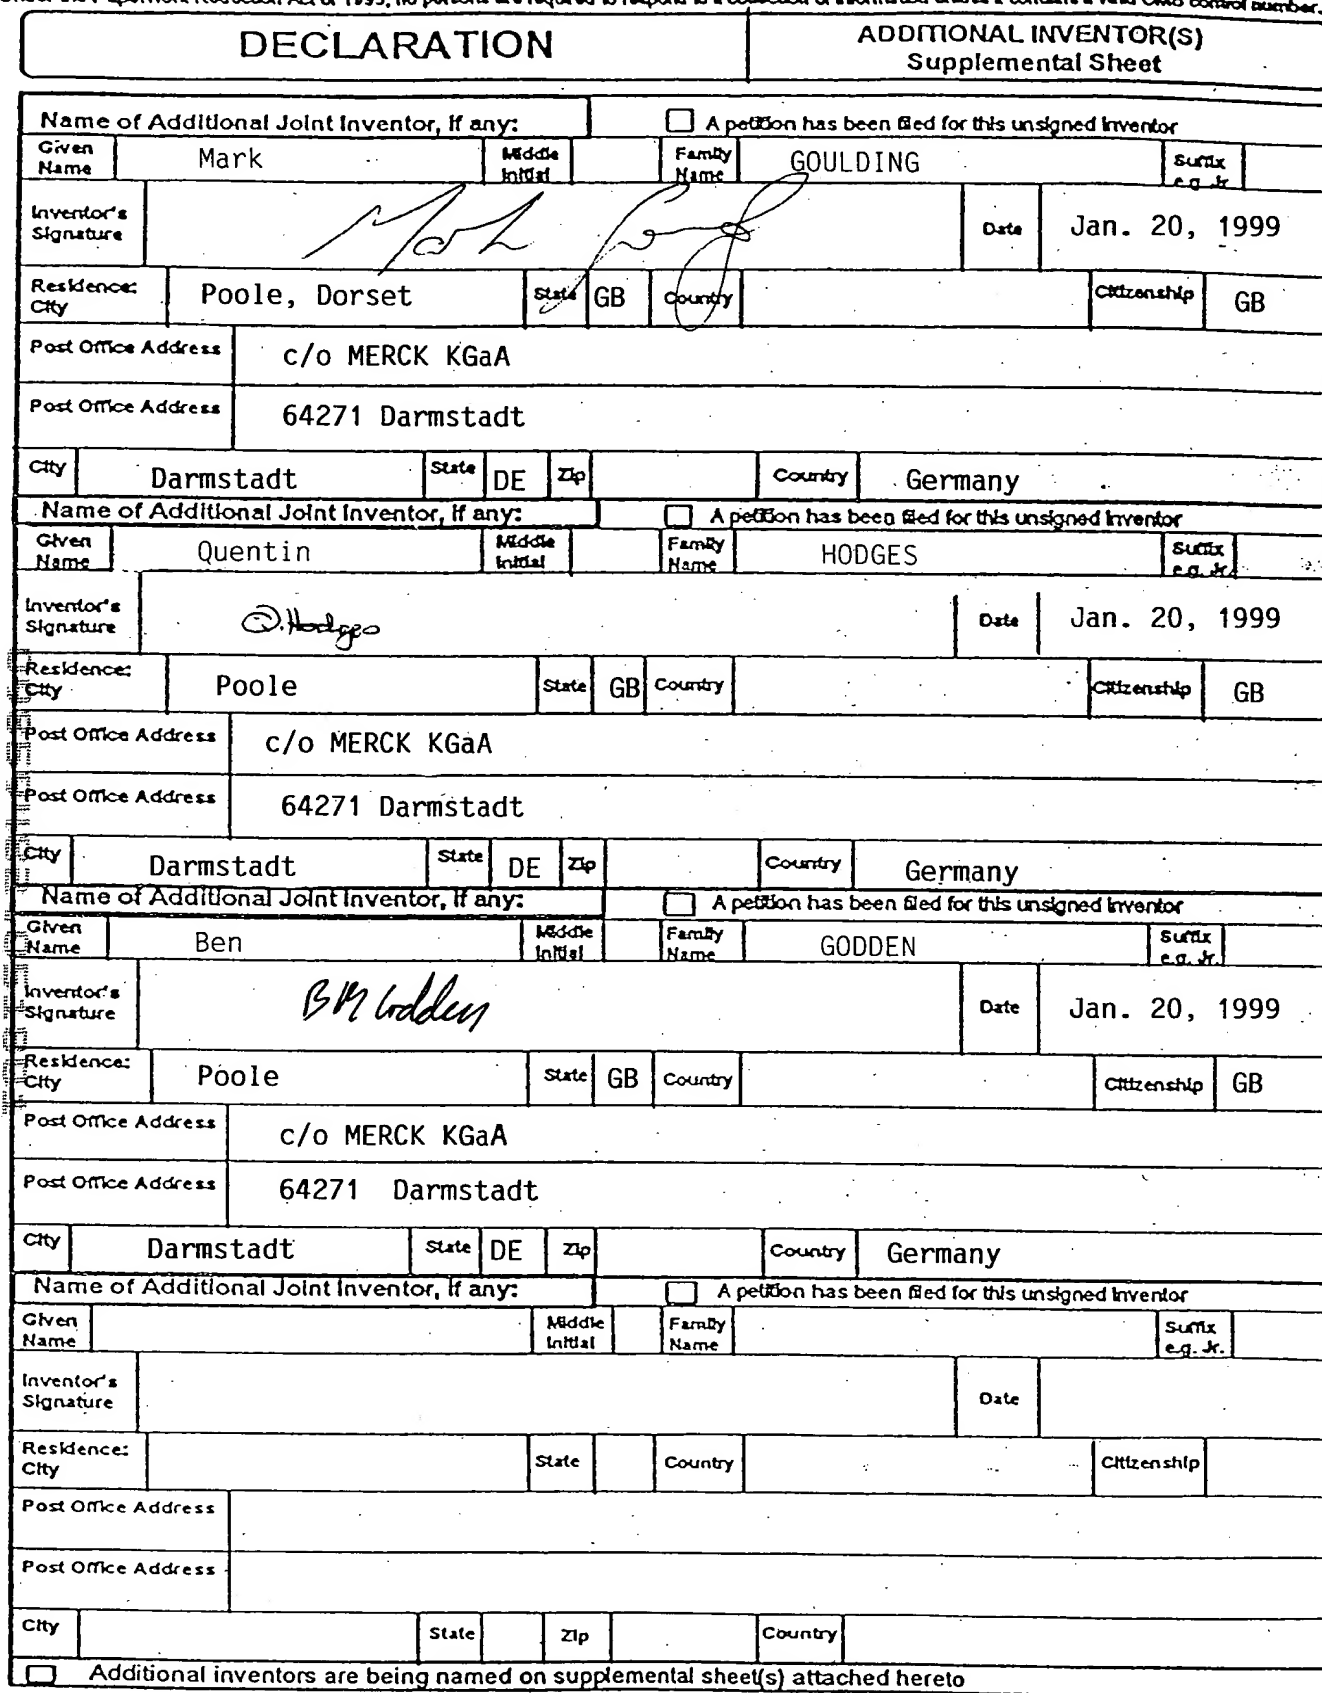 Under the Paperwork Reduction Act of 1995, no persons are required to respond to a collection of information unless it contains a valid OMB control number.
DECLARATION
ADDITIONAL INVENTOR(S)
Supplemental Sheet
Name of Additional Joint Inventor, if any:
A petition has been filed for this unsigned inventor
Given Name Mark Middle Initial Family Name GOULDING Suffix e.g. Jr.
Inventor's Signature Date Jan. 20, 1999
Residence: City Poole, Dorset State GB Country Citizenship GB
Post Office Address c/o MERCK KGaA
Post Office Address 64271 Darmstadt
City Darmstadt State DE Zip Country Germany
Name of Additional Joint Inventor, if any:
A petition has been filed for this unsigned inventor
Given Name Quentin Middle Initial Family Name HODGES Suffix e.g. Jr.
Inventor's Signature Q. Hodges Date Jan. 20, 1999
Residence: City Poole State GB Country Citizenship GB
Post Office Address c/o MERCK KGaA
Post Office Address 64271 Darmstadt
City Darmstadt State DE Zip Country Germany
Name of Additional Joint Inventor, if any:
A petition has been filed for this unsigned inventor
Given Name Ben Middle Initial Family Name GODDEN Suffix e.g. Jr.
Inventor's Signature B M Godden Date Jan. 20, 1999
Residence: City Poole State GB Country Citizenship GB
Post Office Address c/o MERCK KGaA
Post Office Address 64271 Darmstadt
City Darmstadt State DE Zip Country Germany
Name of Additional Joint Inventor, if any:
A petition has been filed for this unsigned inventor
Given Name Middle Initial Family Name Suffix e.g. Jr.
Inventor's Signature Date
Residence: City State Country Citizenship
Post Office Address
Post Office Address
City State Zip Country
Additional inventors are being named on supplemental sheet(s) attached hereto